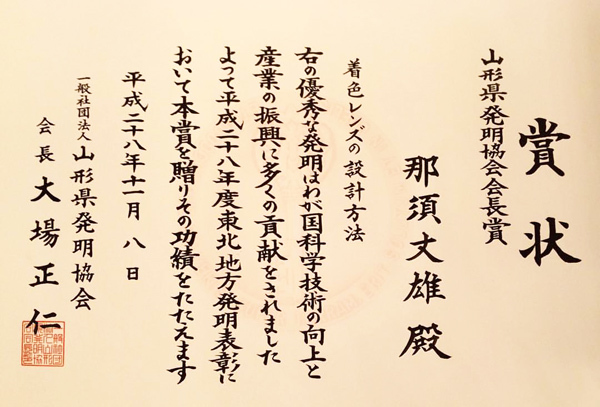 賞状
山形県発明協会会長賞
那須丈雄殿
着色レンズの設計方法
右の優秀な発明はわが国科学技術の向上と
産業の振興に多くの貢献をされました
よって平成二十八年度東北地方発明表彰に
おいて本賞を贈りその功績をたたえます
平成二十八年十一月八日
一般社団法人山形県発明協会
会長大場正仁